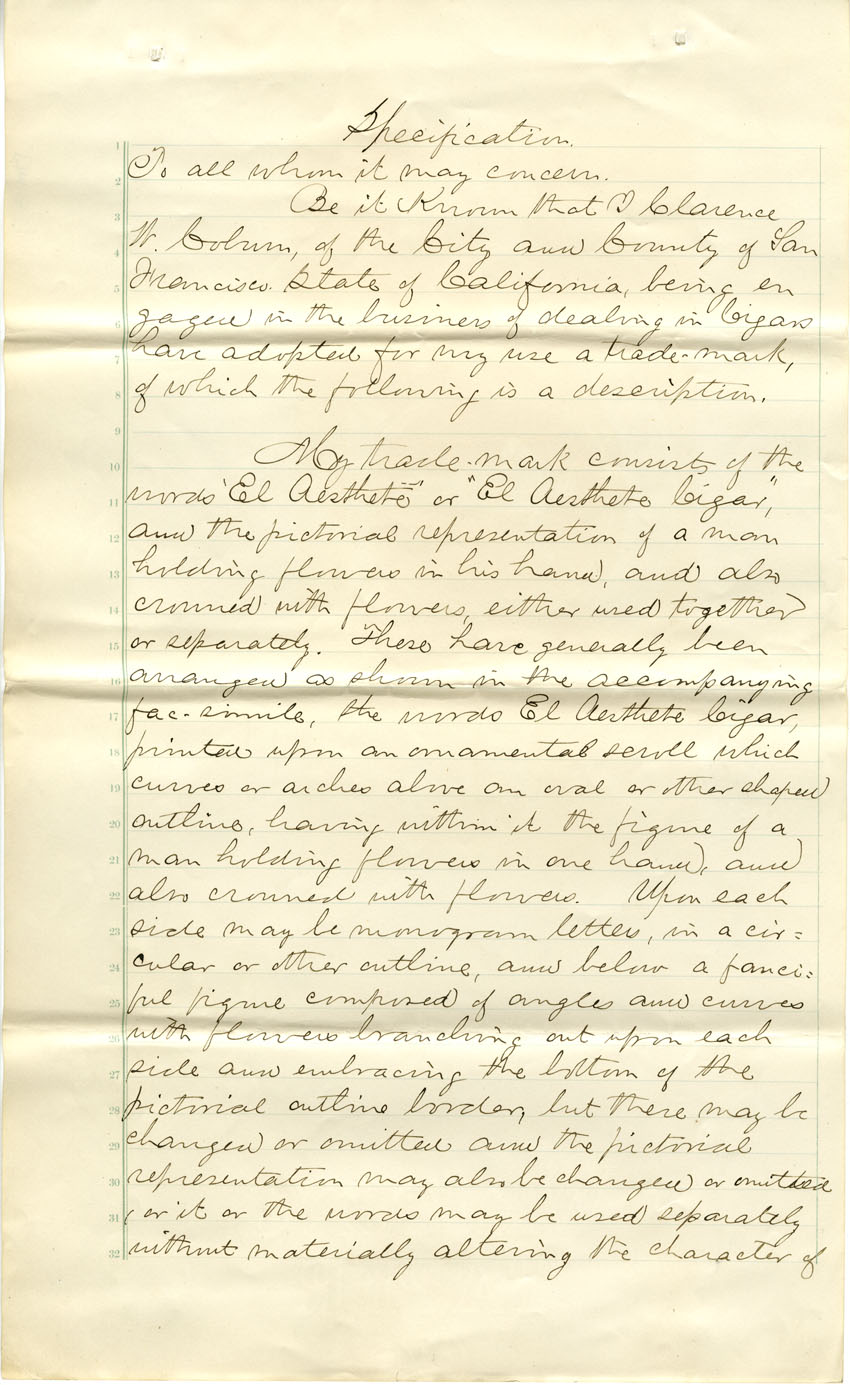 Specification.
To all whom it may concern.
Be it Known that I Clarence
W. Coburn, of the City and County of San
Francisco. State of California, being en
gaged in the business of dealing in Cigars
have adopted for my use a trade-mark,
of which the following is a description.
My trade-mark consists of the
words "El Aesthete" or "El Aesthete Cigar",
and the pictorial representation of a man
holding flowers in his hand, and also
crowned with flowers, either used together
or separately. These have generally been
arranged as shown in the accompanying
fac-simile, the words El Aesthete Cigar,
printed upon an ornamental scroll which
curves or arches above an oval or other shaped
outline, having within it the figure of a
man holding flowers in one hand, and
also crowned with flowers. Upon each
side may be monogram letters, in a cir=
cular or other outline, and below a fanci=
ful figure composed of angles and curves
with flowers branching out upon each
side and embracing the bottom of the
pictorial outline border, but these may be
changed or omitted and the pictorial
representation may also be changed or omitted
, or it or the words may be used separately
without materially altering the character of
1
2
3
4
5
6
7
8
9
10
11
12
13
14
15
16
17
18
19
20
21
22
23
24
25
26
27
28
29
30
31
32